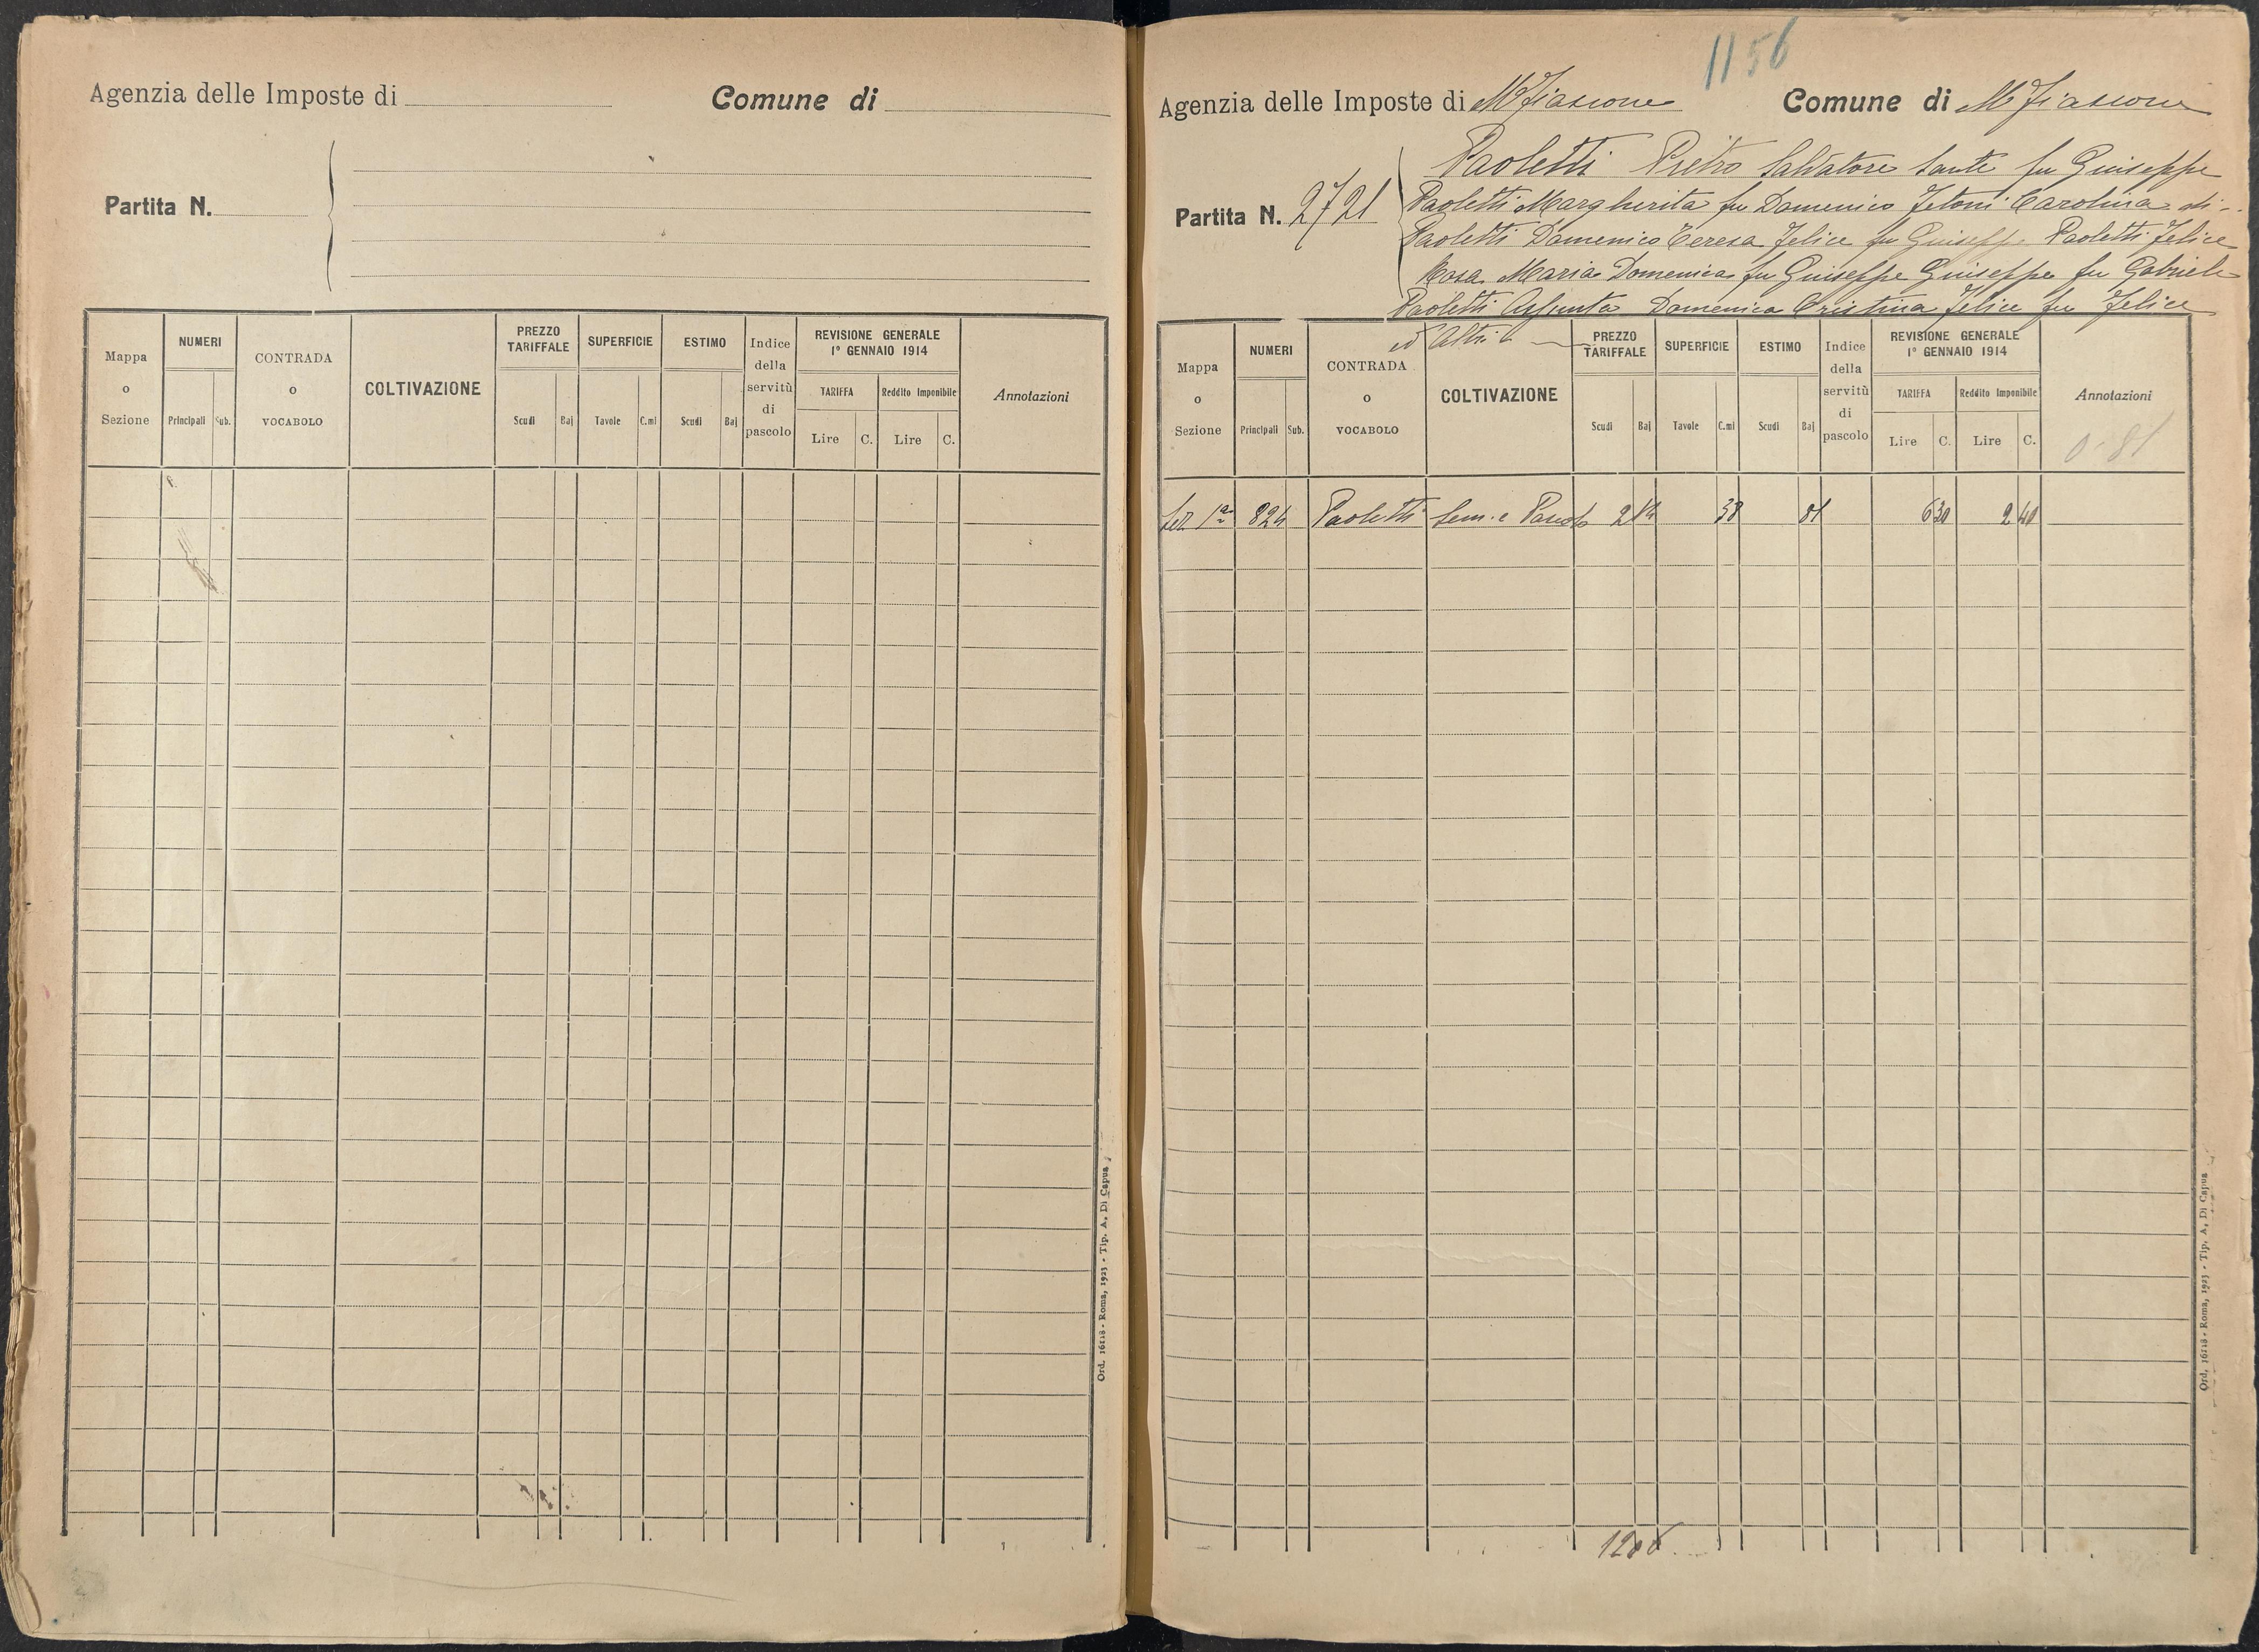 Agenzia delle Imposte di
Comune di
Partita N.
Mappa o Sezione
NUMERI
Principali
Sub.
CONTRADA o VOCABOLO
COLTIVAZIONE
PREZZO TARIFFALE
Scudi
Baj
SUPERFICIE
Tavole
C.mi
ESTIMO
Scudi
Baj
Indice della servitù di pascolo
REVISIONE GENERALE
1° GENNAIO 1914
TARIFFA
Lire
C.
Reddito Imponibile
Lire
C.
Annotazioni
Ord. 16118 - Roma, 1923 - Tip. A. Di Capua
1156
Agenzia delle Imposte di M Fiascone
Comune di M Fiascone
Partita N. 2721
Paoletti Pietro Salvatore Sante fu Giuseppe
Paoletti Margherita fu Domenico Carolina di
Paoletti Domenico Teresa Felice fu Giuseppe Paoletti Felice
Rosa Maria Domenica fu Giuseppe Giuseppe fu Gabriele
Paoletti Assunta Domenica Cristina Felice fu Felice
ed Altri
Mappa o Sezione
NUMERI
Principali
Sub.
CONTRADA o VOCABOLO
COLTIVAZIONE
PREZZO TARIFFALE
Scudi
Baj
SUPERFICIE
Tavole
C.mi
ESTIMO
Scudi
Baj
Indice della servitù di pascolo
REVISIONE GENERALE
1° GENNAIO 1914
TARIFFA
Lire
C.
Reddito Imponibile
Lire
C.
Annotazioni
0-81
Sez. 1a 824 Paoletti Sem. e Pascolo 2 14 38 81 6 30 2 40
Ord. 16118 - Roma, 1923 - Tip. A. Di Capua